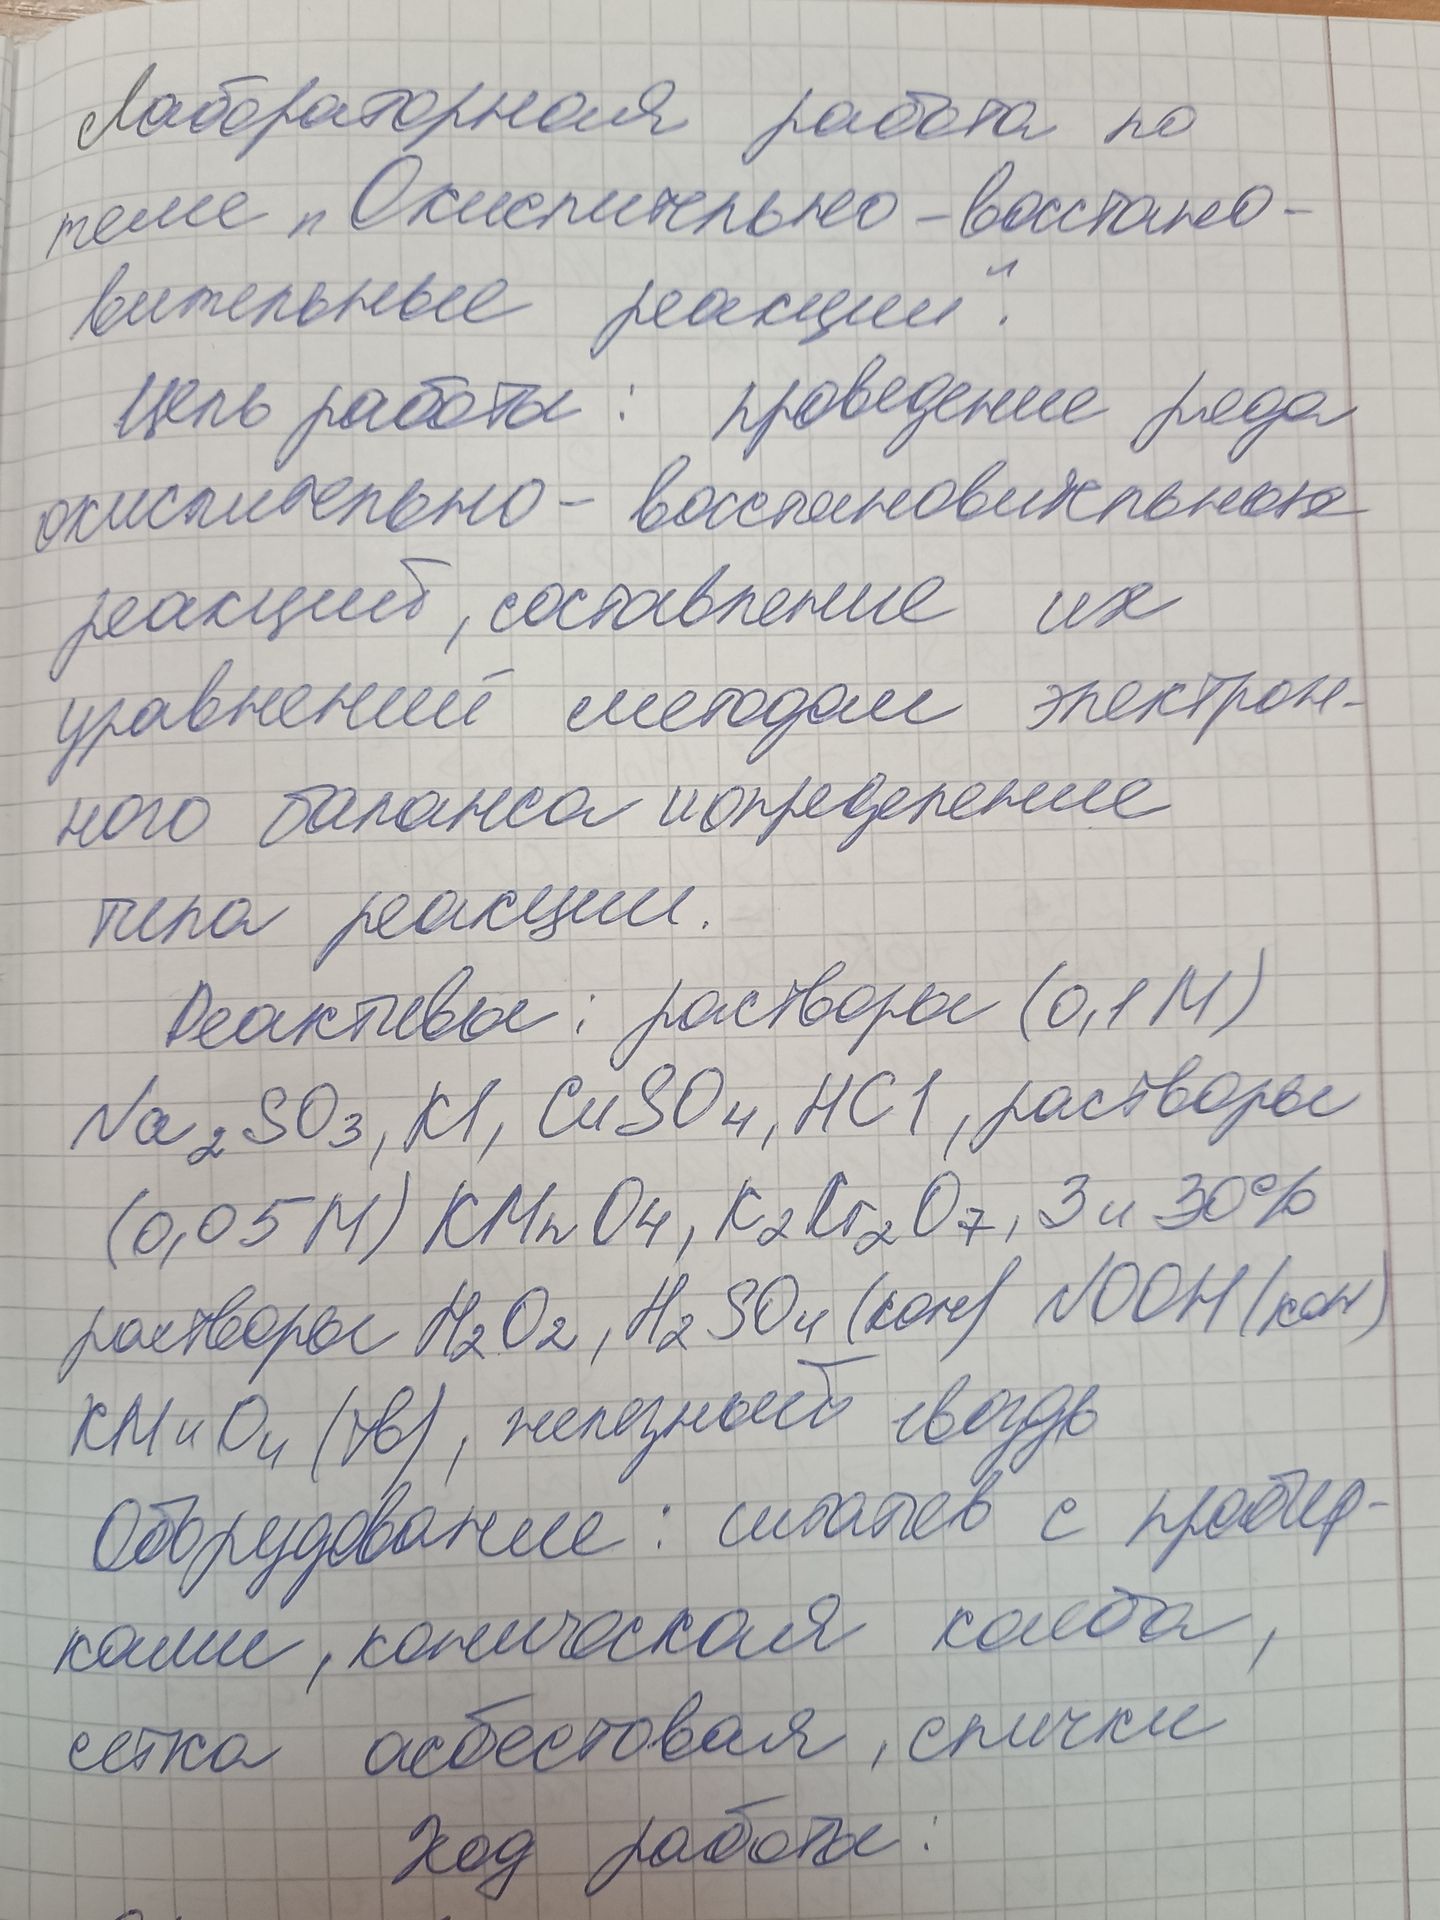 Лабораторная работа по
теме „Окислительно-восстано-
вительные реакции".
Цель работы: проведение ряда
окислительно-восстановительных
реакций, составление их
уравнений методом электрон-
ного баланса и определение
типа реакции.
Реактивы: растворы (0,1 М)
Na₂SO₃, KI, CuSO₄, HCl, растворы
(0,05 М) KMnO₄, K₂Cr₂O₇, 3 и 30%
растворы H₂O₂, H₂SO₄ (конц) NaOH (кон)
KMnO₄ (тв), железный гвоздь
Оборудование: штатив с пробир-
ками, коническая колба,
сетка асбестовая, спички
Ход работы: